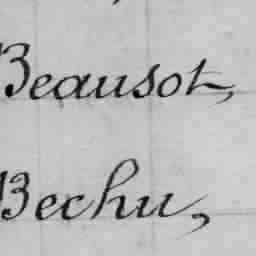 Beausot,
Bechu,